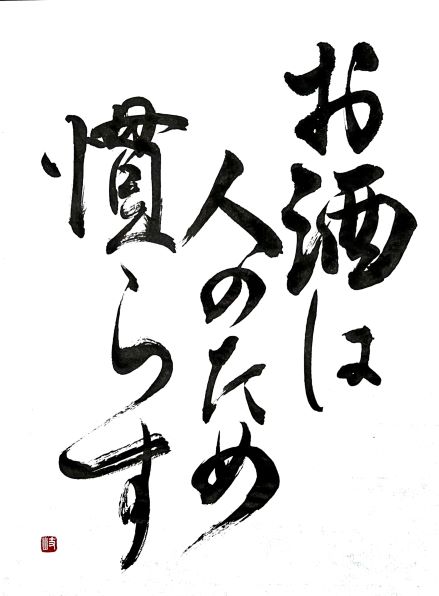 お酒は
人のため
慣らす